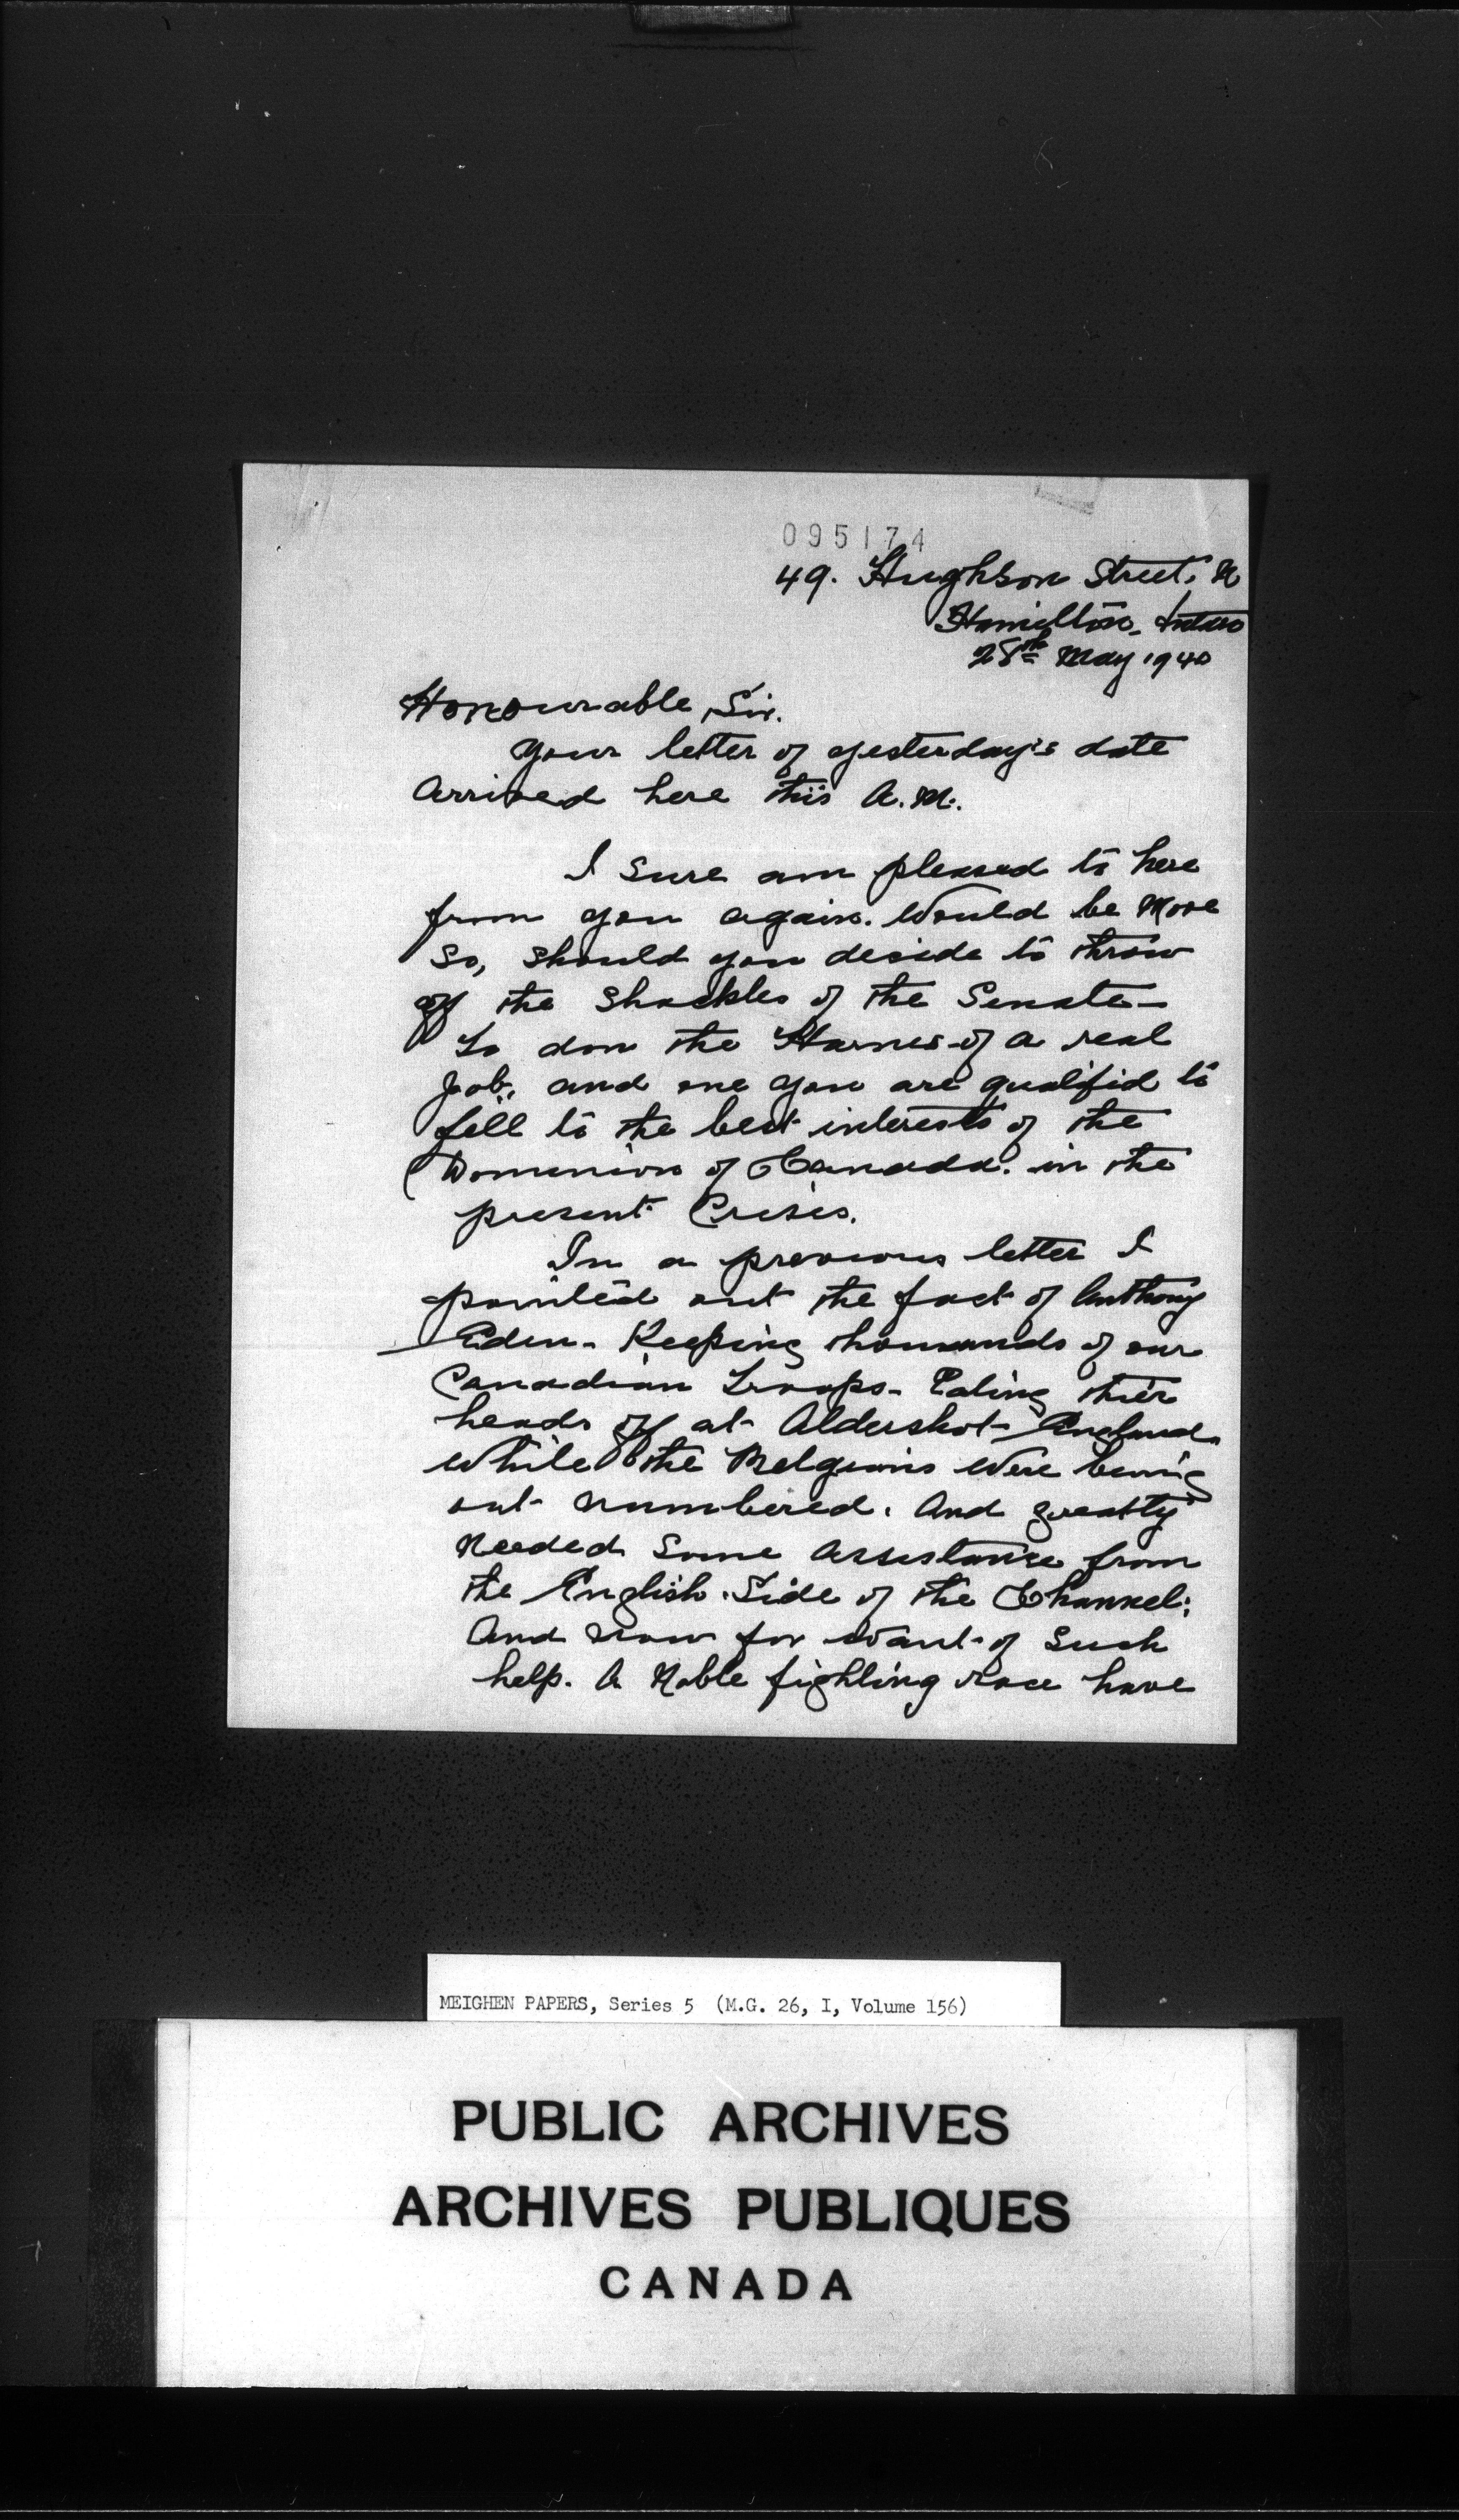 095174
49. Hughson Street, N
Hamilton, Ontario
28th May 1940
Honourable Sir.
Your letter of yesterday's date
Arrived here this A.M.
I sure am pleased to here
from you again. Would be More
So, should you decide to throw
off the shackles of the Senate-
To don the Harness of a real
Job, and one you are qualifid to
fill to the best interests of the
Dominion of Canada. in the
present Crisis.
In a previous letter I
pointed out the fact of Anthony
Eden- Keeping thousands of our
Canadian Troops- Eating thier
heads off at Aldershot- England
While the Belgians Were being
out numbered. And greatly
Needed Some Assistance from
the English Side of the Channel;
And now for want of Such
help. A Noble fighting race have
MEIGHEN PAPERS, Series 5 (M.G. 26, I, Volume 156)
PUBLIC ARCHIVES
ARCHIVES PUBLIQUES
CANADA